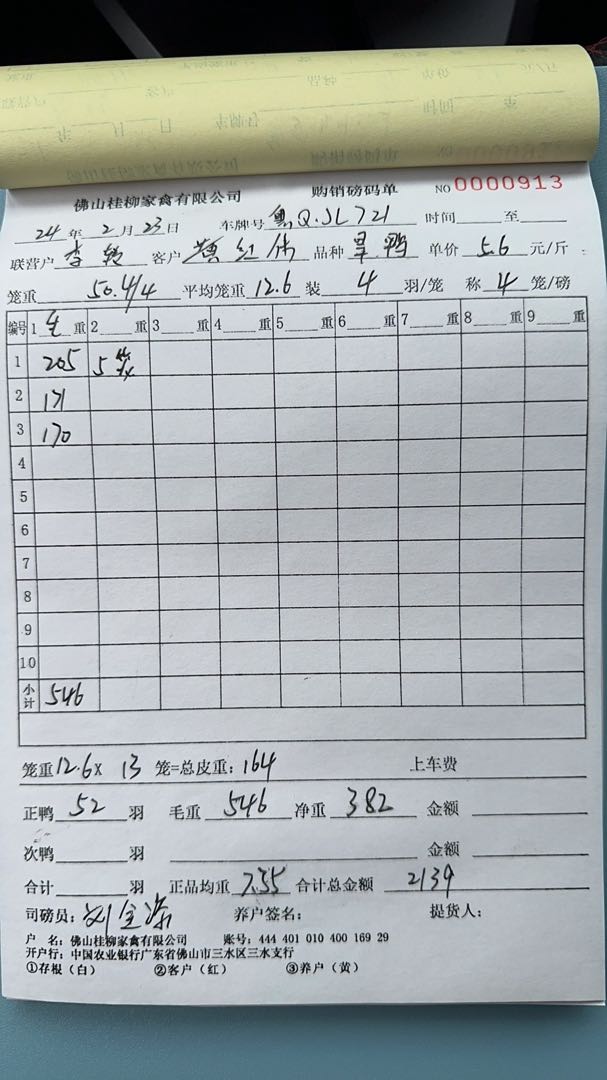 佛山桂柳家禽有限公司 购销磅码单 NO 0000913
24 年 2 月 23 日 车牌号 粤Q.JL721 时间 至
联营户 李 客户 黄红伟 品种 旱鸭 单价 5.6 元/斤
笼重 50.4/4 平均笼重 12.6 装 4 羽/笼 称 4 笼/磅
编号 1 毛 重 2 重 3 重 4 重 5 重 6 重 7 重 8 重 9 重
1 205 5笼
2 171
3 170
4
5
6
7
8
9
10
小计 546
笼重 12.6 x 13 笼=总皮重: 164 上车费
正鸭 52 羽 毛重 546 净重 382 金额
次鸭 羽 金额
合计 羽 正品均重 7.35 合计总金额 2139
司磅员: 刘 养户签名: 提货人:
户 名: 佛山桂柳家禽有限公司 账号: 444 401 010 400 169 29
开户行: 中国农业银行广东省佛山市三水区三水支行
①存根（白） ②客户（红） ③养户（黄）